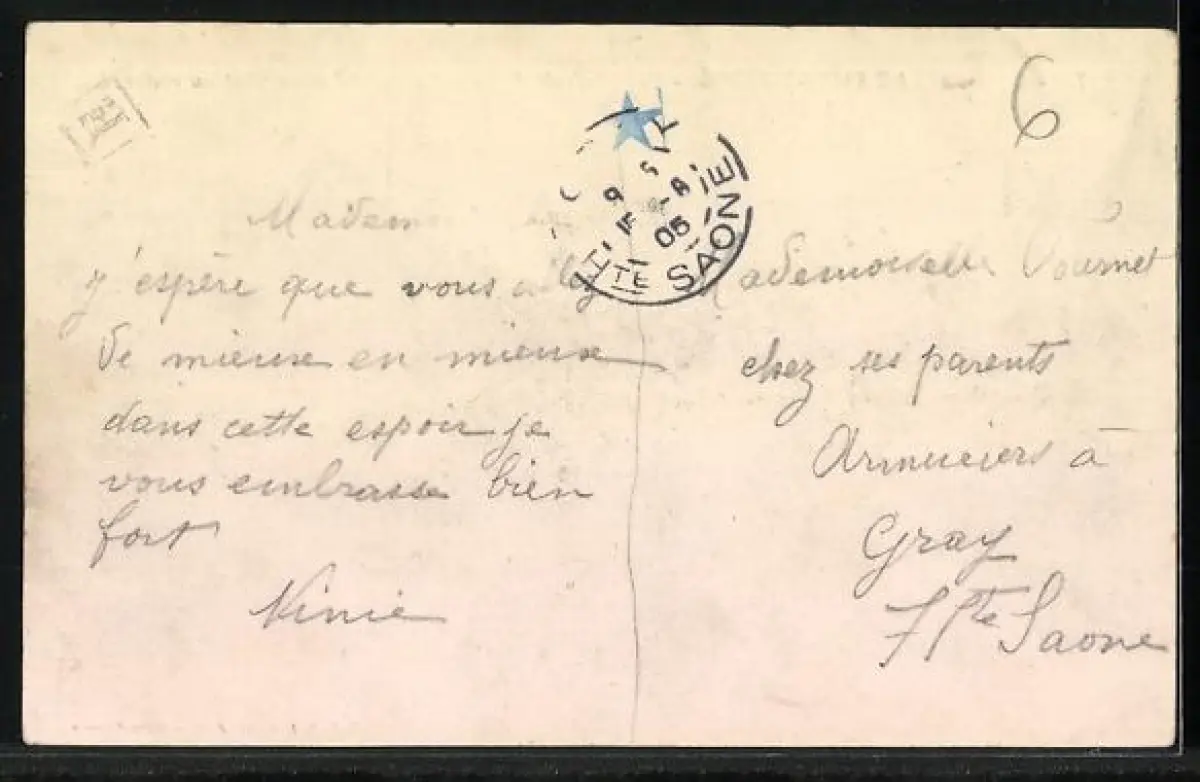 6
Madem
j'espère que vous allez
de mieuxe en mieuxe
dans cette espoir je
vous embrasse bien
fort
Ninie
Mademoiselle Vournet
chez ses parents
Armuriers à
Gray
Hte Saone
05
HTE SAONE